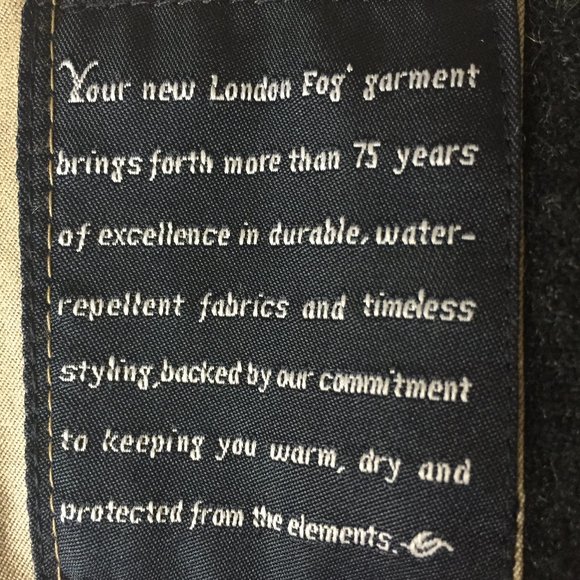 Your new London Fog® garment
brings forth more than 75 years
of excellence in durable, water-
repellent fabrics and timeless
styling, backed by our commitment
to keeping you warm, dry and
protected from the elements.